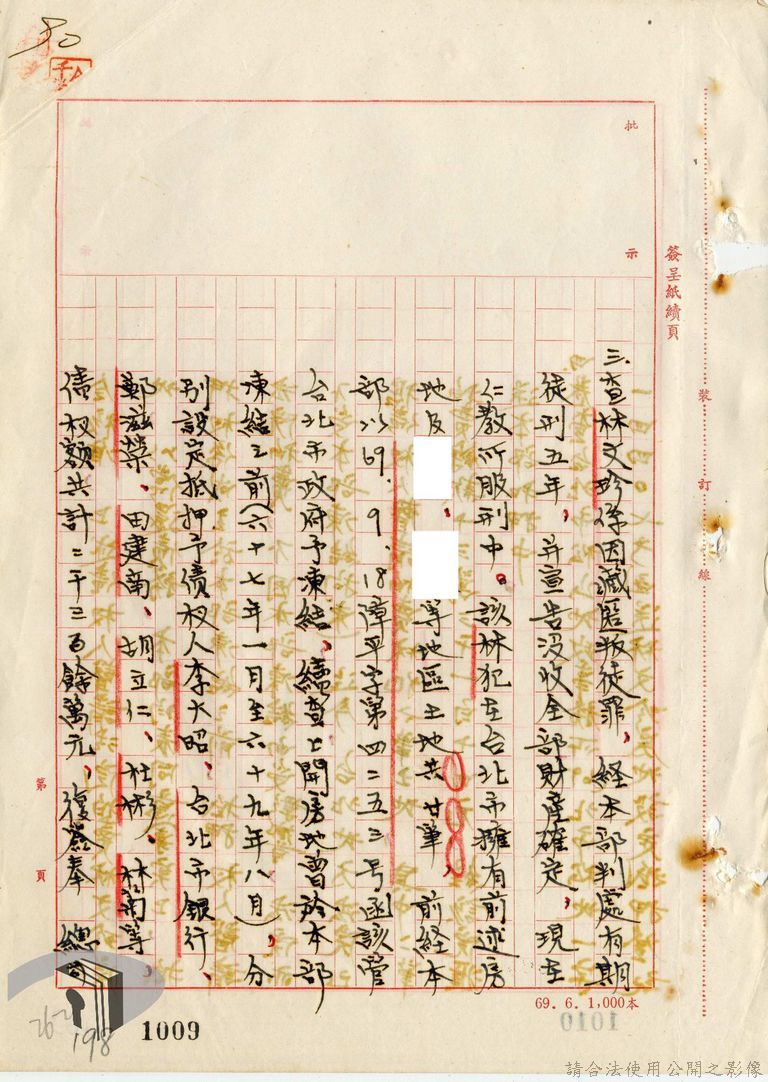 80
批
示
簽呈紙續頁
裝
訂
線
三、查林文珍係因藏匿叛徒罪，経本部判處有期
徒刑五年，并宣告没收全部財產確定，現在
仁教所服刑中。該林犯在台北市擁有前述房
地及 、 等地區土地共廿筆，前経本
部以69.9.18障平字第四二五三号函該管
台北市政府予凍結，續查上開房地曾於本部
凍結之前（六十七年一月至六十九年八月），分
別設定抵押予债权人李大昭、台北市銀行、
鄭滋榮、田建南、胡立仁、杜彬、林南等，
債权額共計二千三百餘萬元，復簽奉 總司
第
頁
69.6.1,000本
1010
262
198
1009
請合法使用公開之影像